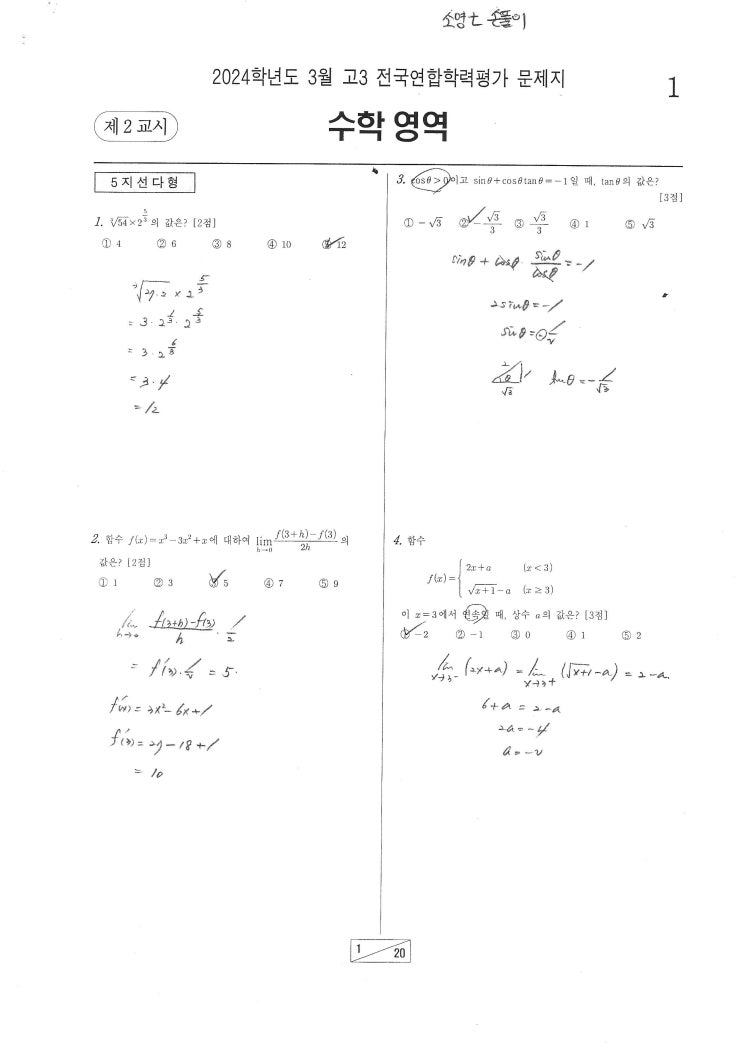 소영士 손풀이
2024학년도 3월 고3 전국연합학력평가 문제지
1
제 2 교시
수학 영역
5지선다형
1. ∛54×2^(5/3)의 값은? [2점]
① 4 ② 6 ③ 8 ④ 10 ⑤ 12
∛(27·2) × 2^(5/3)
= 3·2^(1/3)·2^(5/3)
= 3·2^(6/3)
= 3·4
= 12
2. 함수 f(x)=x³-3x²+x에 대하여 lim h→0 (f(3+h)-f(3))/2h 의
값은? [2점]
① 1 ② 3 ③ 5 ④ 7 ⑤ 9
lim h→0 (f(3+h)-f(3))/h · 1/2
= f'(3)·1/2 = 5.
f'(x) = 3x²-6x+1
f'(3) = 27-18+1
= 10
3. cosθ>0이고 sinθ+cosθtanθ=-1일 때, tanθ의 값은?
[3점]
① -√3 ② -√3/3 ③ √3/3 ④ 1 ⑤ √3
sinθ + cosθ · sinθ/cosθ = -1
2sinθ = -1
sinθ = -1/2
2 1 θ √3 tanθ = -1/√3
4. 함수
f(x)={ 2x+a (x<3)
√(x+1)-a (x≥3)
이 x=3에서 연속일 때, 상수 a의 값은? [3점]
① -2 ② -1 ③ 0 ④ 1 ⑤ 2
lim x→3- (2x+a) = lim x→3+ (√(x+1)-a) = 2-a
6+a = 2-a
2a = -4
a = -2
1 20